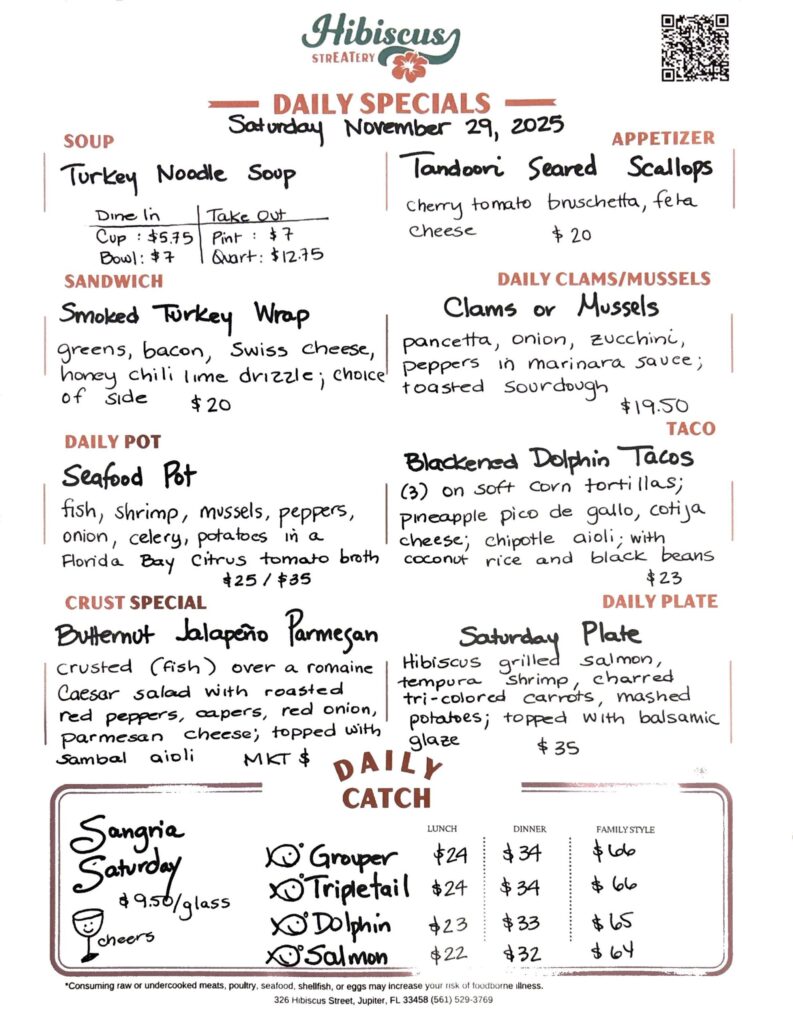 Hibiscus
STREATERY
DAILY SPECIALS
Saturday November 29, 2025
SOUP
Turkey Noodle Soup
Dine In | Take Out
Cup : $5.75 | Pint : $7
Bowl: $7 | Quart: $12.75
APPETIZER
Tandoori Seared Scallops
cherry tomato bruschetta, feta
cheese $20
SANDWICH
Smoked Turkey Wrap
greens, bacon, Swiss cheese,
honey chili lime drizzle; choice
of side $20
DAILY CLAMS/MUSSELS
Clams or Mussels
pancetta, onion, zucchini,
peppers in marinara sauce;
toasted sourdough
$19.50
DAILY POT
Seafood Pot
fish, shrimp, mussels, peppers,
onion, celery, potatoes in a
Florida Bay Citrus tomato broth
$25 / $35
TACO
Blackened Dolphin Tacos
(3) on soft corn tortillas;
pineapple pico de gallo, cotija
cheese; chipotle aioli; with
coconut rice and black beans
$23
CRUST SPECIAL
Butternut Jalapeño Parmesan
crusted (fish) over a romaine
Caesar salad with roasted
red peppers, capers, red onion,
parmesan cheese; topped with
sambal aioli MKT $
DAILY PLATE
Saturday Plate
Hibiscus grilled salmon,
tempura shrimp, charred
tri-colored carrots, mashed
potatoes; topped with balsamic
glaze $35
DAILY
CATCH
Sangria
Saturday
$9.50/glass
cheers
LUNCH DINNER FAMILY STYLE
Grouper $24 $34 $66
Tripletail $24 $34 $66
Dolphin $23 $33 $65
Salmon $22 $32 $64
*Consuming raw or undercooked meats, poultry, seafood, shellfish, or eggs may increase your risk of foodborne illness.
326 Hibiscus Street, Jupiter, FL 33458 (561) 529-3769